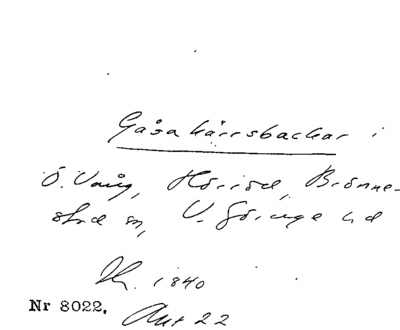 Gåsakärrsbackar i
Ö. Vång, Hörröd, Brönne-
stad sn, V. Göinge hd
Sk. 1840
Nr 8022. Akt 22